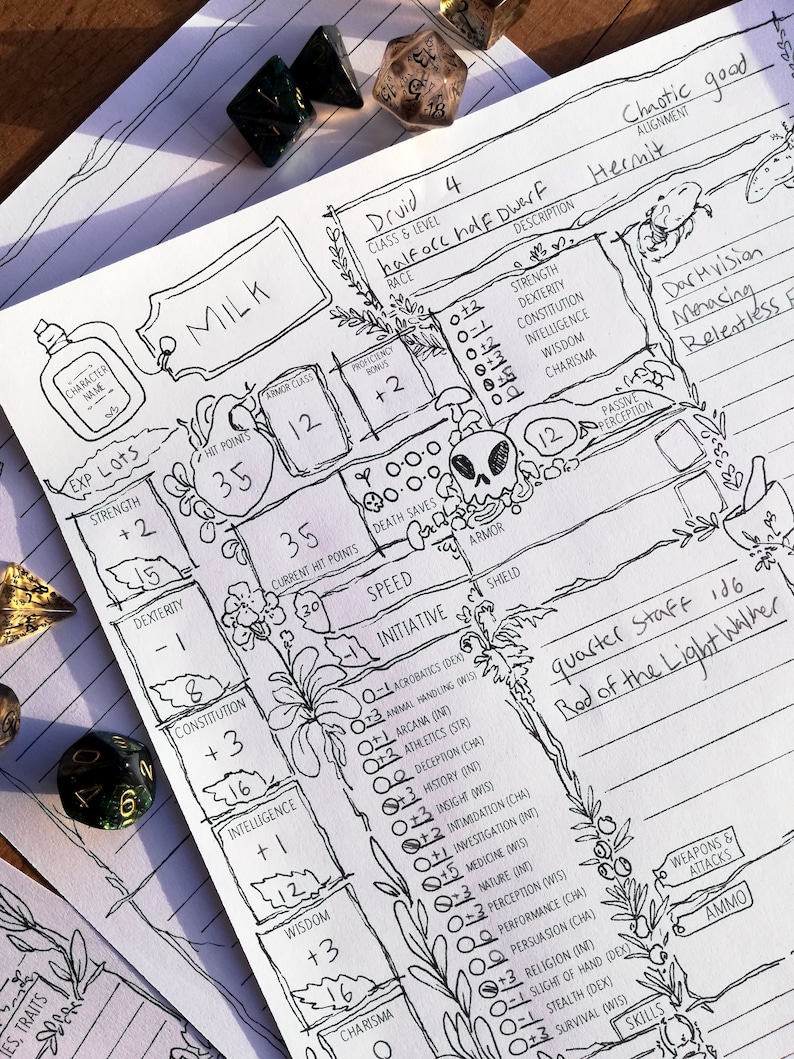 Chaotic good
ALIGNMENT
Druid 4
Hermit
CLASS & LEVEL
DESCRIPTION
half orc half Dwarf
RACE
MILK
CHARACTER
NAME
EXP LOTS
HIT POINTS
35
ARMOR CLASS
12
PROFICIENCY
BONUS
+2
+2 STRENGTH
-1 DEXTERITY
CONSTITUTION
INTELLIGENCE
WISDOM
CHARISMA
Darkvision
Menacing
Relentless
12 PASSIVE
PERCEPTION
35
CURRENT HIT POINTS
DEATH SAVES
ARMOR
SHIELD
20 SPEED
INITIATIVE
STRENGTH
+2
15
DEXTERITY
-1
8
CONSTITUTION
+3
16
INTELLIGENCE
+1
12
WISDOM
+3
16
CHARISMA
-1 ACROBATICS (DEX)
+3 ANIMAL HANDLING (WIS)
+1 ARCANA (INT)
+2 ATHLETICS (STR)
0 DECEPTION (CHA)
+3 HISTORY (INT)
+3 INSIGHT (WIS)
+2 INTIMIDATION (CHA)
+1 INVESTIGATION (INT)
+5 MEDICINE (WIS)
+3 NATURE (INT)
+3 PERCEPTION (WIS)
0 PERFORMANCE (CHA)
0 PERSUASION (CHA)
+3 RELIGION (INT)
-1 SLIGHT OF HAND (DEX)
-1 STEALTH (DEX)
+3 SURVIVAL (WIS)
SKILLS
quarter Staff 1d6
Rod of the LightWalker
WEAPONS &
ATTACKS
AMMO
TRAITS